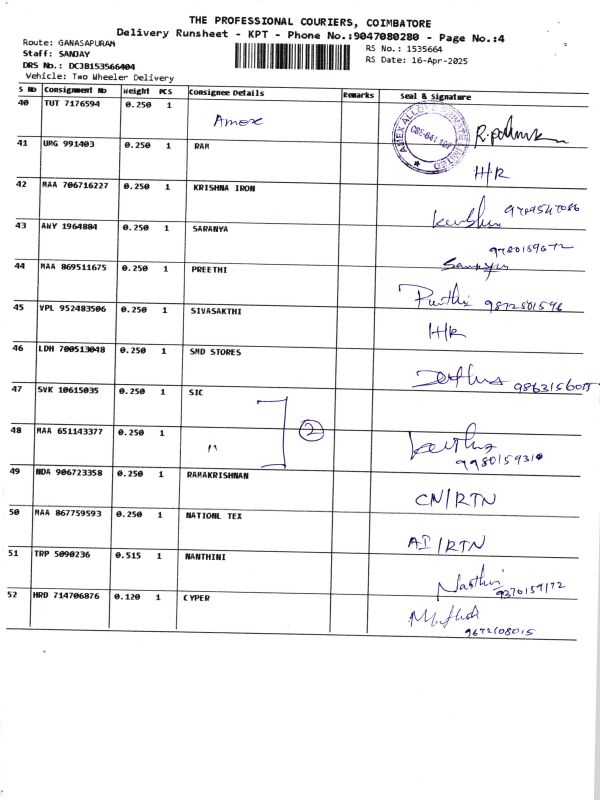 THE PROFESSIONAL COURIERS, COIMBATORE
Delivery Runsheet - KPT - Phone No.:9047080280 - Page No.:4
Route: GANASAPURAM
RS No.: 1535664
Staff: SANJAY
RS Date: 16-Apr-2025
DRS No.: DCJB153566404
Vehicle: Two Wheeler Delivery
S No Consignment No Weight PCS Consignee Details Remarks Seal & Signature
40 TUT 7176594 0.250 1 Amex
AMEX ALLOYS PRIVATE LIMITED
41 UMG 991403 0.250 1 RAM H/R
42 MAA 706716227 0.250 1 KRISHNA IRON
43 AWY 1964884 0.250 1 SARANYA
44 MAA 869511675 0.250 1 PREETHI 9872501596
45 VPL 952483506 0.250 1 SIVASAKTHI H/R
46 LDH 700513048 0.250 1 SMD STORES
47 SVK 10615035 0.250 1 SIC
2
48 MAA 651143377 0.250 1 "
9980159310
49 NDA 906723358 0.250 1 RAMAKRISHNAN CN/RTN
50 MAA 867759593 0.250 1 NATIONL TEX AI/RTN
51 TRP 5090236 0.515 1 NANTHINI
52 HRD 714706876 0.120 1 CYPER
9672108015